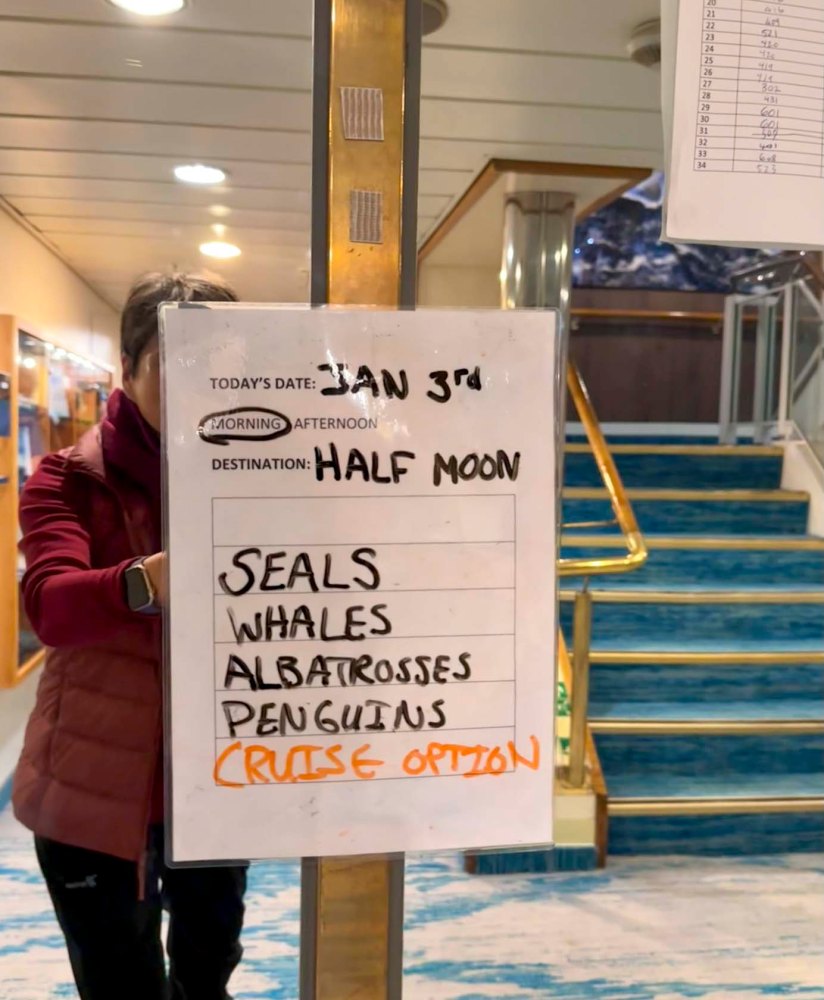 20
21
22 409
23 521
24 420
25
26 419
27 419
28 302
29 431
30 601
31 601
32
33
34 608
523
TODAY'S DATE: JAN 3rd
MORNING AFTERNOON
DESTINATION: HALF MOON
SEALS
WHALES
ALBATROSSES
PENGUINS
CRUISE OPTION